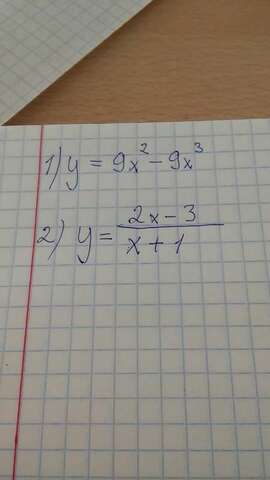 1) y = 9x² - 9x³
2) y = (2x - 3)/(x + 1)